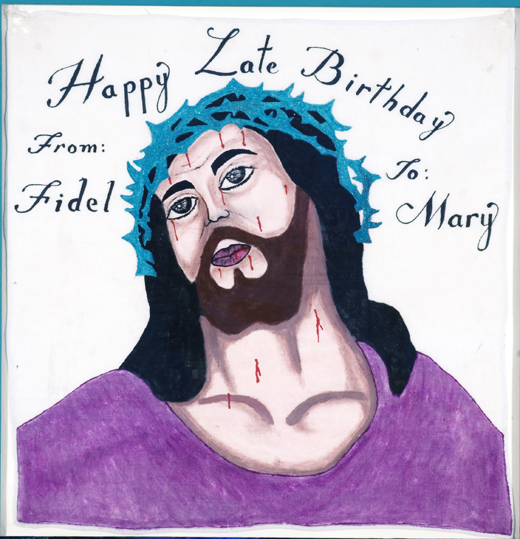 Happy Late Birthday
From:
Fidel
To:
Mary